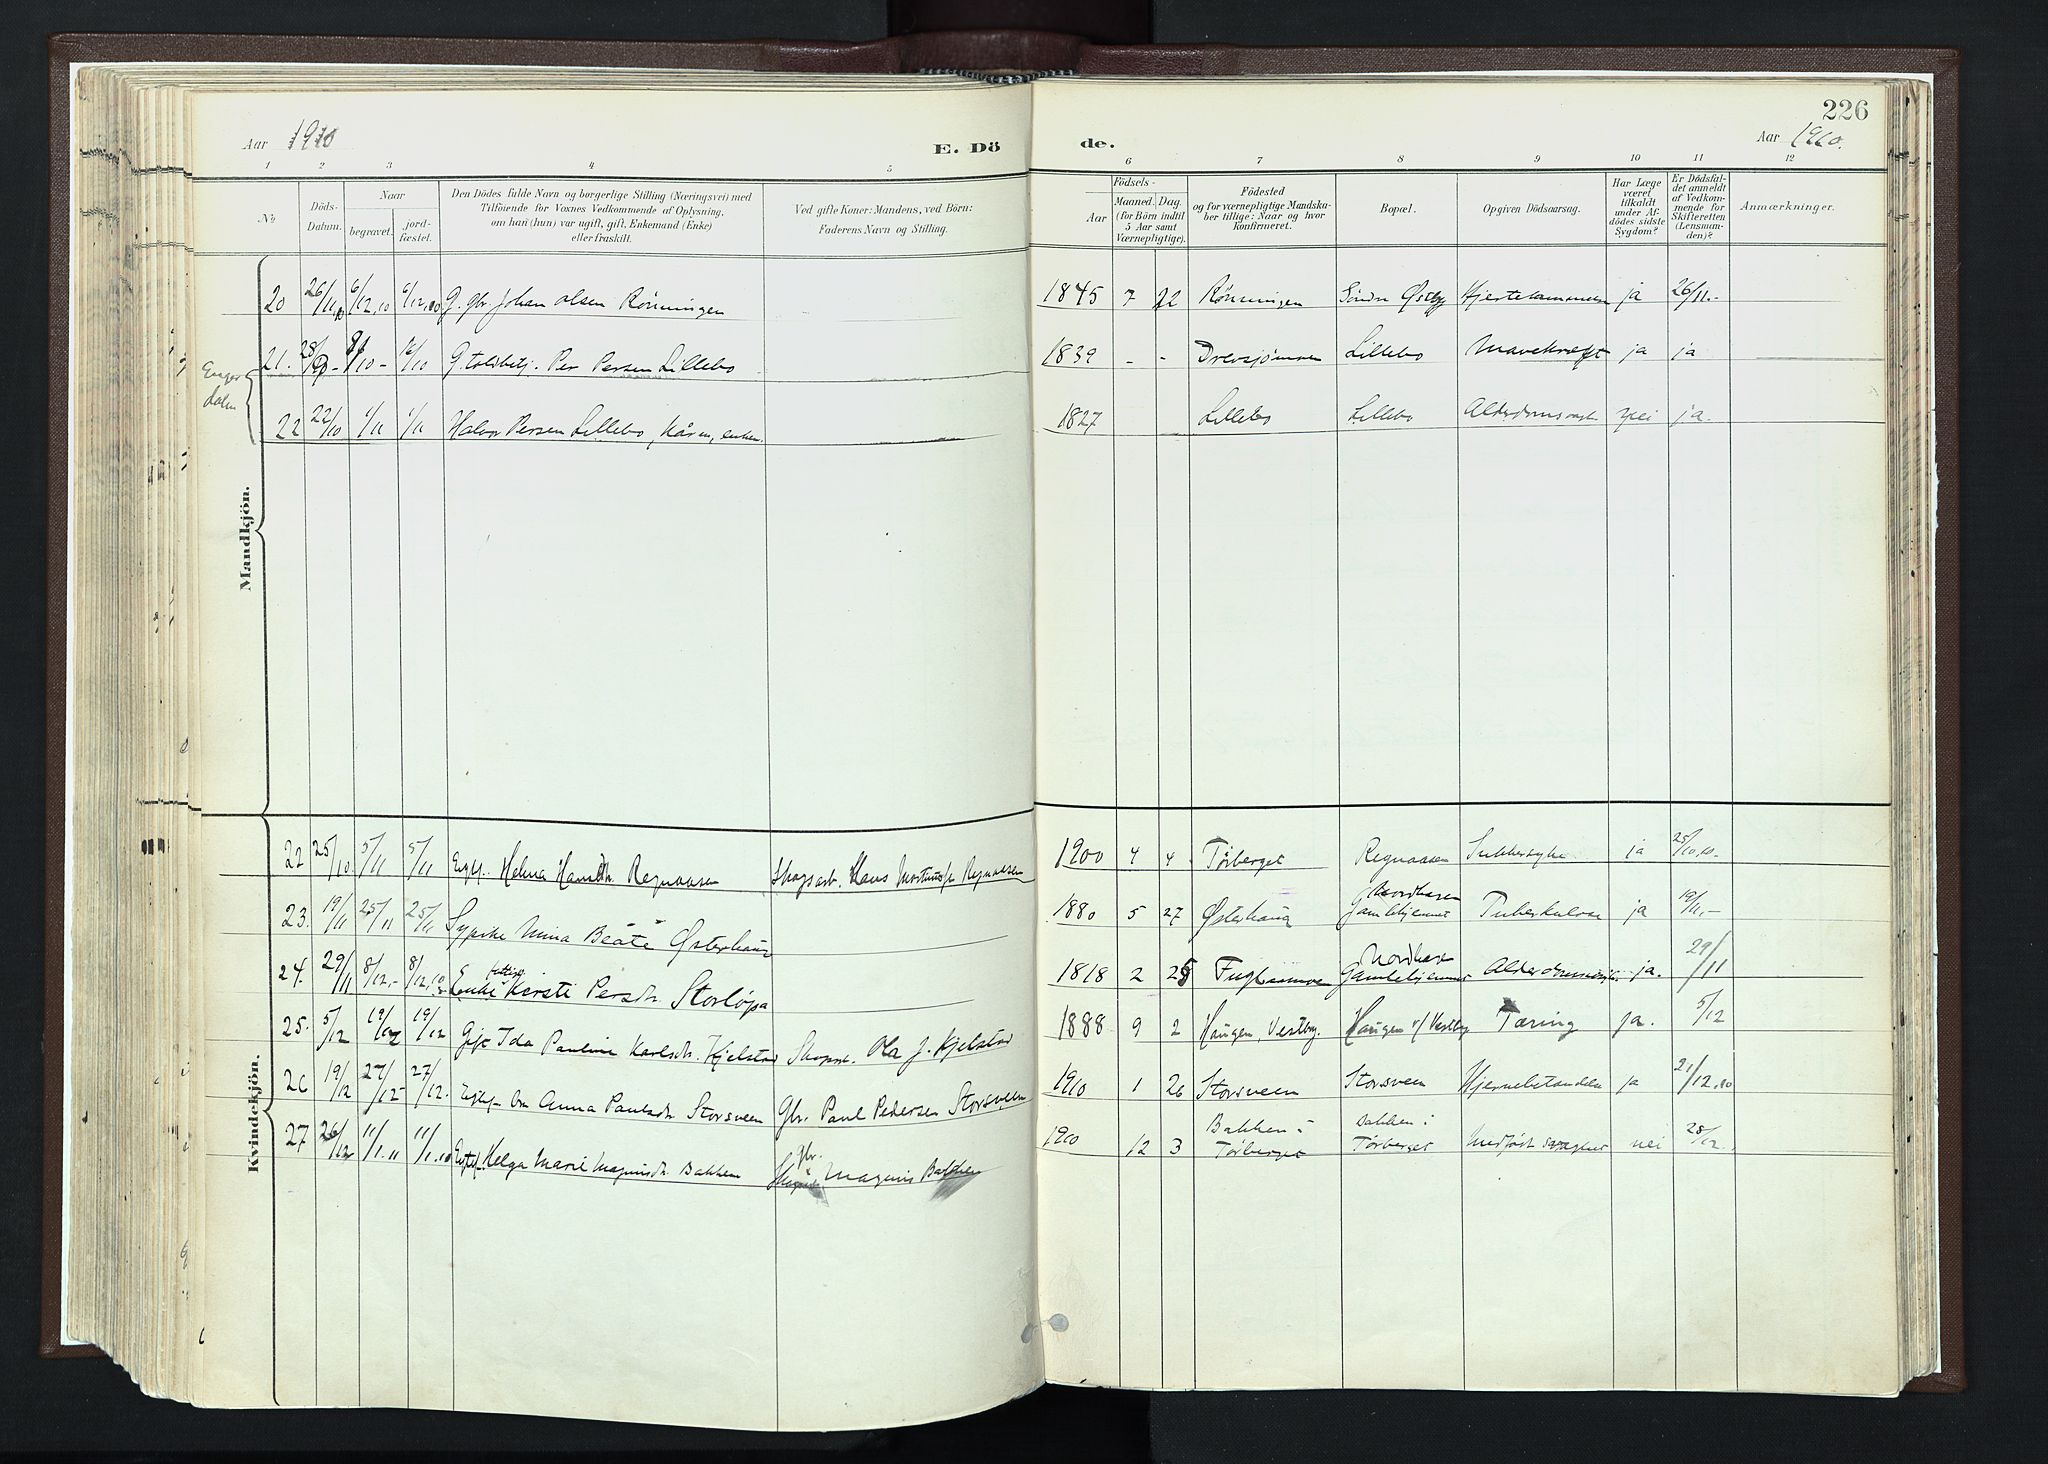 226
Aar 1910
E. Döde.
Aar 1910.
1 2 3 4 5 6 7 8 9 10 11 12
No
Döds-Datum.
Naar
begravet.
jordfæstet.
Den Dödes fulde Navn og borgerlige Stilling (Næringsvei) med
Tilföiende for Voxnes Vedkommende af Oplysning,
om han (hun) var ugift, gift, Enkemand (Enke)
eller fraskilt.
Ved gifte Koner: Mandens, ved Börn:
Faderens Navn og Stilling.
Födsels-
Aar
Maaned. Dag.
(for Börn indtil
5 Aar samt
Værnepligtige).
Födested
og for værnepligtige Mandska-
ber tillige: Naar og hvor
konfirmeret.
Bopæl.
Opgiven Dödsaarsag.
Har Læge
været
tilkaldt
under Af-
dödes sidste
Sygdom?
Er Dödsfal-
det anmeldt
af Vedkom-
mende for
Skifteretten
(Lensman-
den)?
Anmærkninger.
Mandkjön.
20 26/11,10 6/12,10 6/12,10 G. gbr. Johan Olsen Rönningen 1845 7 22 Rönningen Söndre Østby ja 26/11.-
Enger
dalen
21. 16/10 Per Persen Lillebo 1839 - - Drevsjömoen Lillebo Mavekræft ja ja
22 22/10 1/11 1/11 Halvor Persen Lillebo, 1827 Lillebo Lillebo nei ja.
Kvindekjön.
22 25/10 5/11 5/11 Helena Hansdtr. Regnaasen Skogsarb. Hans Regnaasen 1900 4 4 Törberget Regnaasen Sukkersyke ja 25/10,10.
23. 19/11 25/11 25/11 Syerske Mina Beate Østerhaug 1880 5 27 Østerhaug Nordhaven Gamlehjemmet Tuberkulose ja 19/11,-
24. 29/11 8/12,- 8/12,10 fattig Enke Kersti Persdr. Storløpa 1818 2 Nordhaven Gamlehjemmet ja. 29/11
25. 5/12 19/12 19/12 Gift Ida Pauline Karlsdr. Kjelstad Ola J. Kjelstad 1888 9 2 Haugen, Vestby. Haugen i/ Vestby Tæring ja. 5/12
26 19/12 27/12 27/12. Anna Paulsdr. Storsveen Gbr. Paul Pedersen Storsveen 1910 1 26 Storsveen Storsveen Hjernebetændelse ja 21/12,10
27 26/12 11/1.11 Helga Marie Magnusdr. Bakken gbr. Magnus Bakken 1910 12 3 Bakken i Törberget Bakken i Törberget Medfödt svaghet nei 28/12.